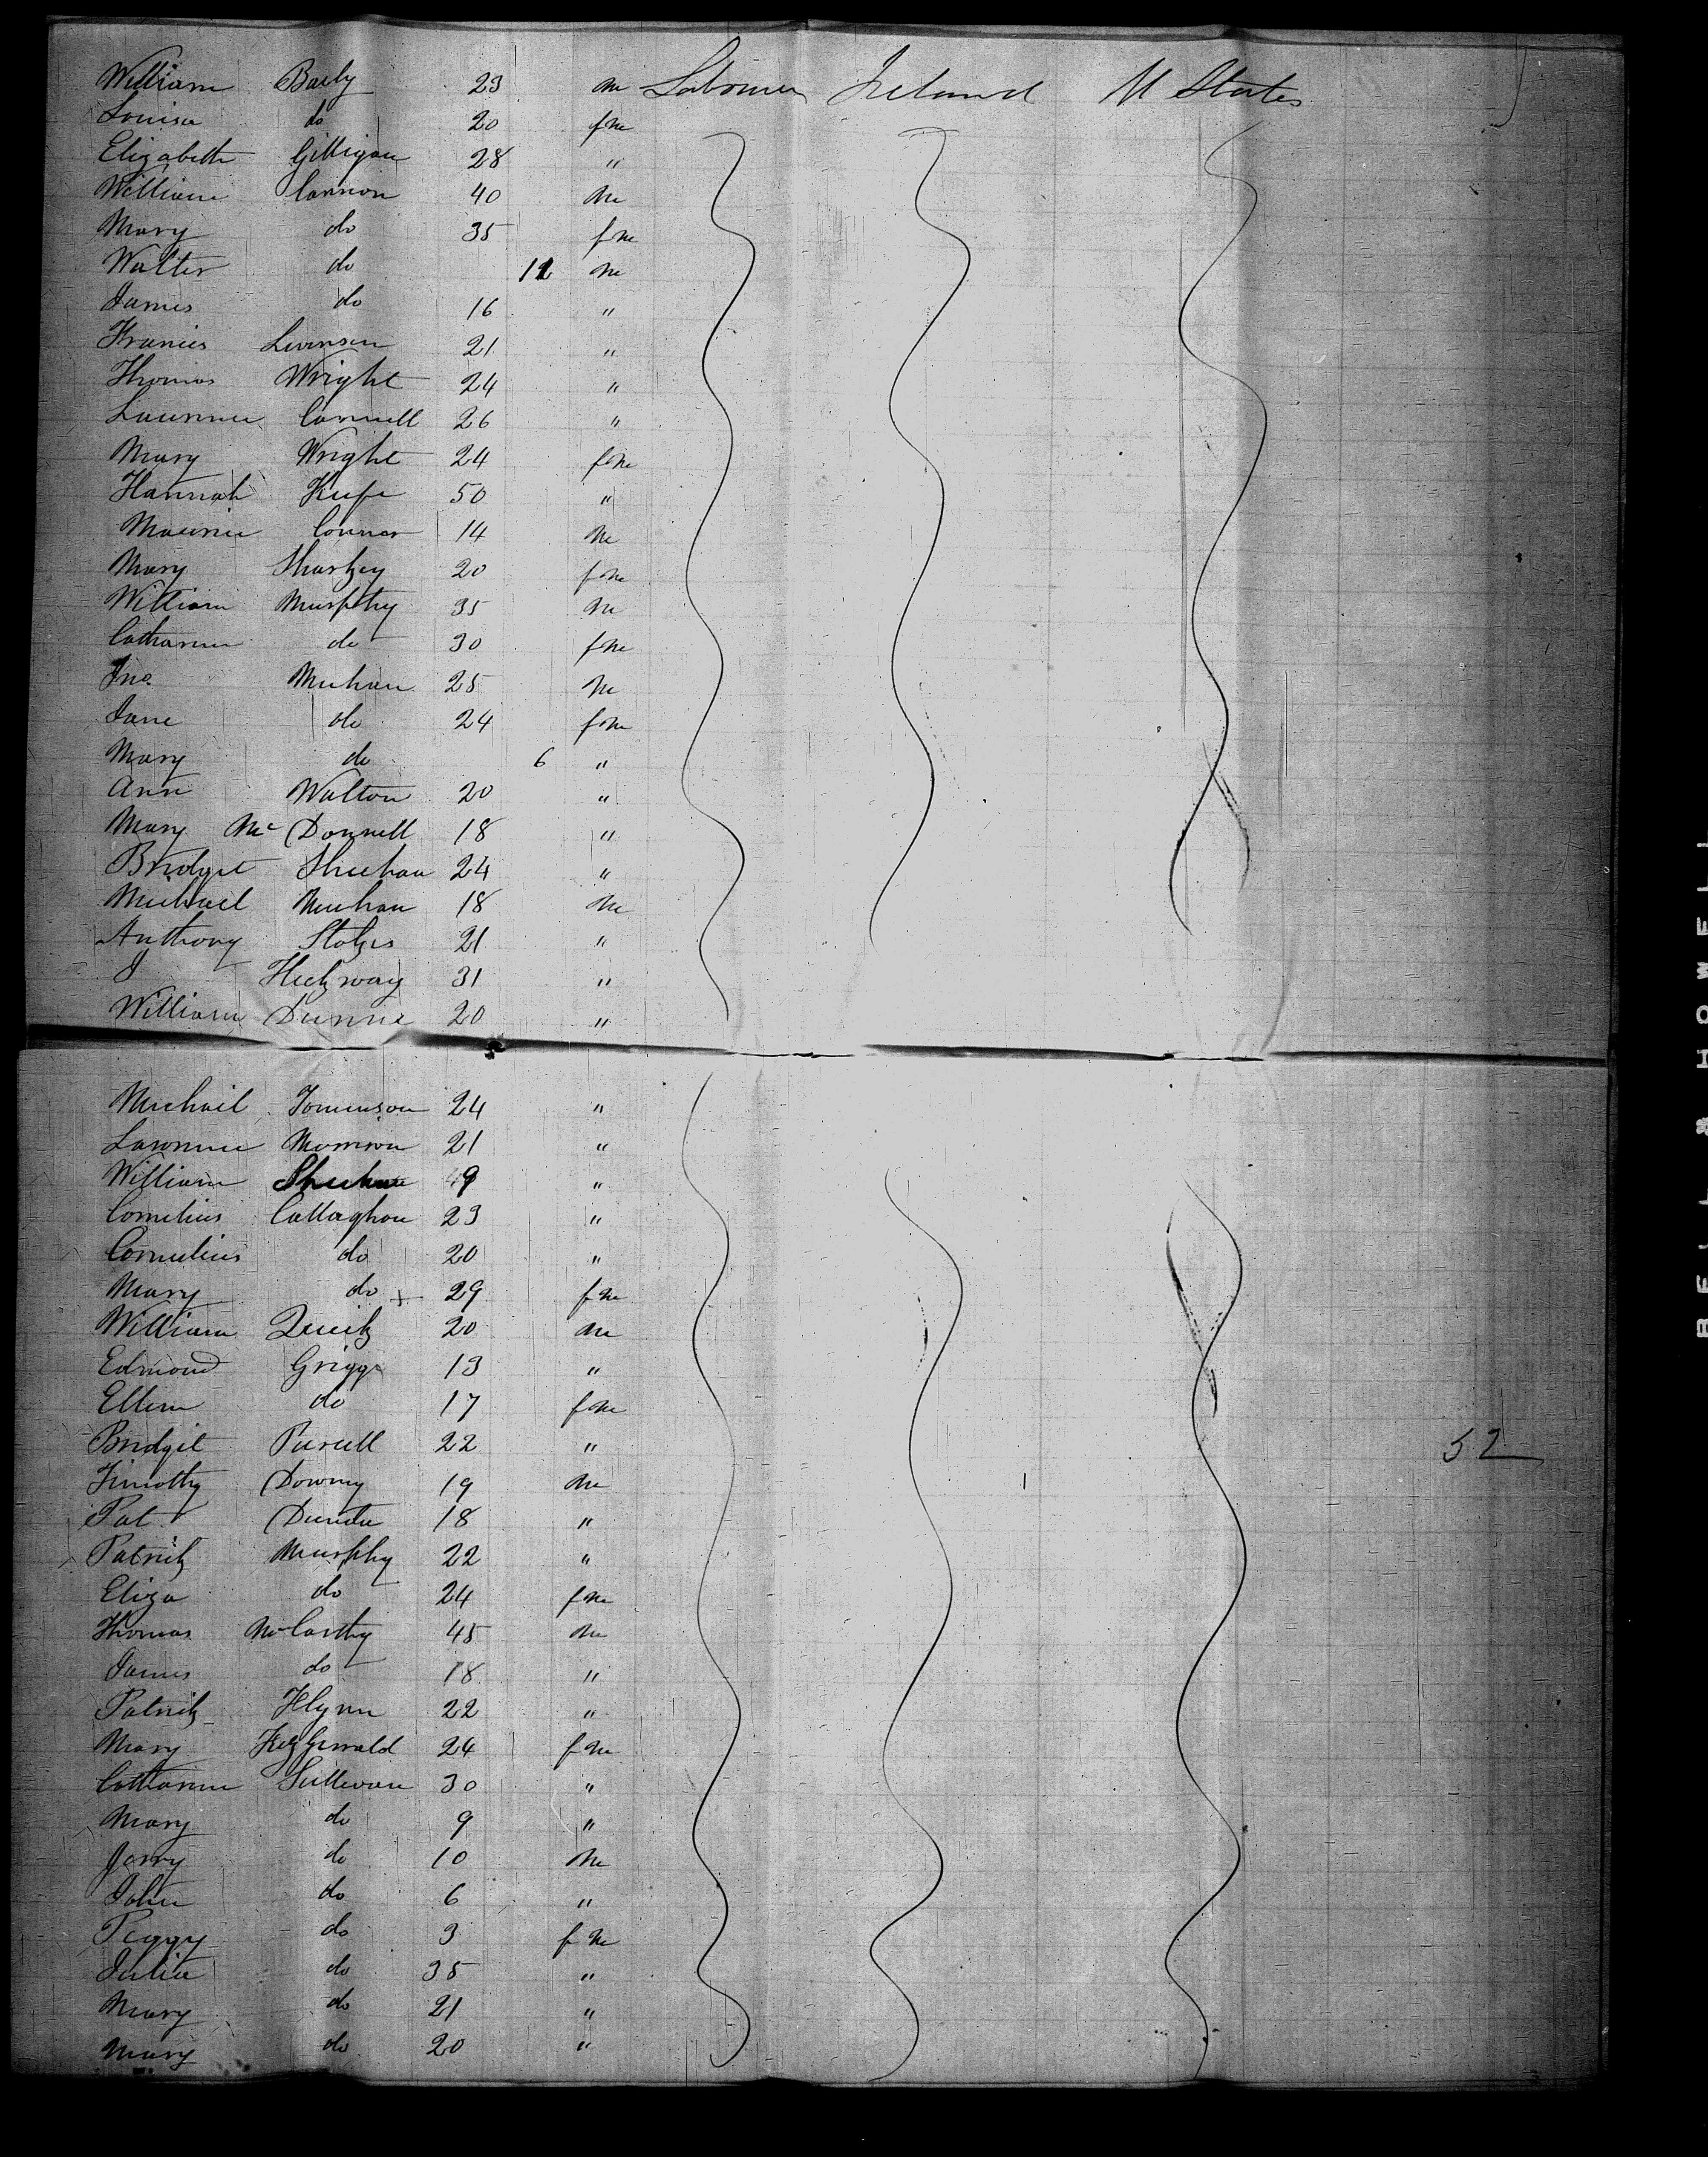 William Baily 23 m Labourer Ireland U States
Louisa do 20 fm
Elizabeth Gilligan 28 "
William Cannon 40 m
Mary do 35 fm
Walter do 12 m
James do 16 "
Francis 21 "
Thomas Wright 24 "
Lawrence Connell 26 "
Mary Wright 24 fm
Hannah Keefe 50 "
Maurice Connor 14 m
Mary Sharkey 20 fm
William Murphy 35 m
Catharine do 30 fm
Jno. Meehan 25 m
Jane do 24 fm
Mary do 6 "
Ann Walton 20 "
Mary Mc Donnell 18 "
Bridget Sheehan 24 "
Michael Meehan 18 m
Anthony Stokes 21 "
J 31 "
William Dunne 20 "
Michail Tominson 24 "
Lawrence Morrison 21 "
William Sheehan "
Cornelius Callaghan 23 "
Cornelius do 20 "
Mary do + 29 fm
William Quirk 20 m
Edmond Griggs 13 "
Ellen do 17 fm
Bridget Purcell 22 "
52
Timothy Downy 19 m
Pat 18 "
Patrick Murphy 22 "
Eliza do 24 fm
Thomas McCarthy 45 m
James do 18 "
Patrick Flynn 22 "
Mary Fitzgerald 24 fm
Catharine Sullivan 30 "
Mary do 9 "
Jerry do 10 m
John do 6 "
Peggy do 3 fm
Julia do 35 "
Mary do 21 "
Mary do 20 "
BELL & HOWELL